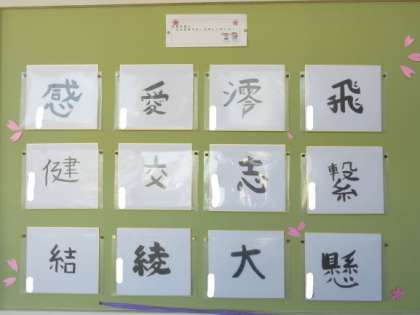 感 愛 澪 飛
健 交 志 繋
結 綾 大 懸